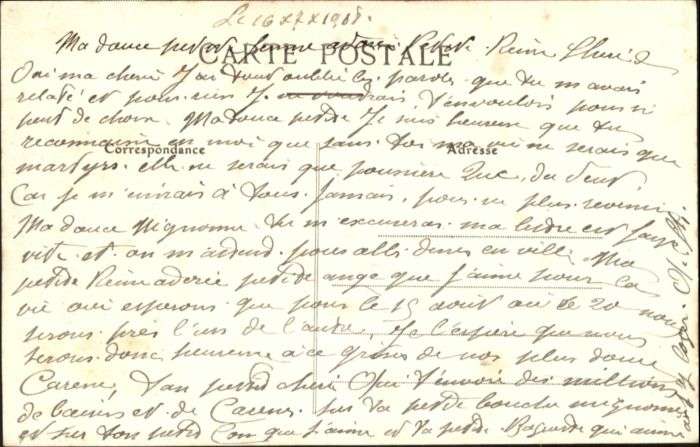 Le 16 X 7 X 1908.
Ma douce petite femme adorée Petite Reine Cherie
CARTE POSTALE
Oui ma cherie J'ai tout oublié les paroles que tu m'avais
relaté et pour rien Je ne voudrais t'en vouloir pour si
peut de chose. Ma douce petite Je suis heureux que tu
reconnaisse en moi que sans toi ma vie ne serais que
Correspondance
Adresse
martyrs. elle ne serais que poussière que du vent
Car je m'en irais à tous Jamais pour ne plus revenir
Ma douce Mignonne tu m'excuseras ma lettre est fait
vite et on m'attend pour allé diner en ville Ma
petite Reine adorée petite ange que J'aime pour la
vie oui esperons que pour le 15 août au le 20 nous
serons près l'un de l'autre, Je l'espère que nous
serons donc heureux de nos plus douce
Caresse, ton petit cheri Qui t'envoie des millions
de baisers et de Caresse sur ta petite bouche mignonne
et sur ton petit que J'aime et ta petite qui aime